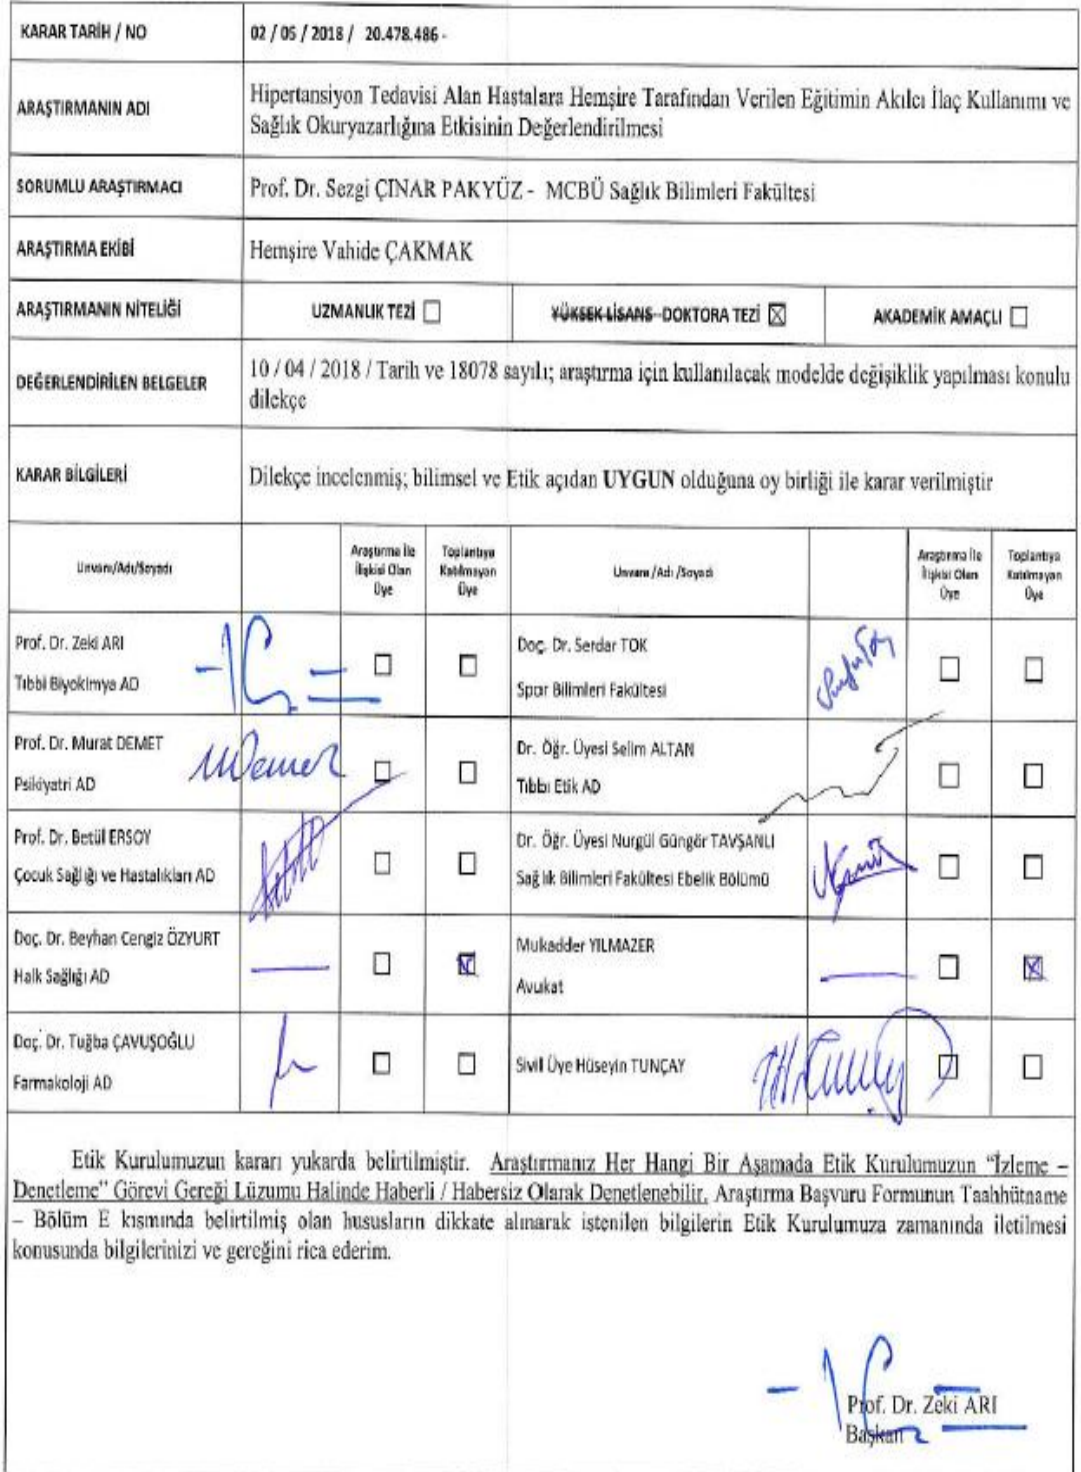 KARAR TARİH / NO
02 / 05 / 2018 / 20.478.486 -
ARAŞTIRMANIN ADI
Hipertansiyon Tedavisi Alan Hastalara Hemşire Tarafından Verilen Eğitimin Akılcı İlaç Kullanımı ve
Sağlık Okuryazarlığına Etkisinin Değerlendirilmesi
SORUMLU ARAŞTIRMACI
Prof. Dr. Sezgi ÇINAR PAKYÜZ - MCBÜ Sağlık Bilimleri Fakültesi
ARAŞTIRMA EKİBİ
Hemşire Vahide ÇAKMAK
ARAŞTIRMANIN NİTELİĞİ
UZMANLIK TEZİ ☐
YÜKSEK LİSANS- DOKTORA TEZİ ☒
AKADEMİK AMAÇLI ☐
DEĞERLENDİRİLEN BELGELER
10 / 04 / 2018 / Tarih ve 18078 sayılı; araştırma için kullanılacak modelde değişiklik yapılması konulu
dilekçe
KARAR BİLGİLERİ
Dilekçe incelenmiş; bilimsel ve Etik açıdan UYGUN olduğuna oy birliği ile karar verilmiştir
Unvanı/Adı/Soyadı
Araştırma İle
İlişkisi Olan
Üye
Toplantıya
Katılmayan
Üye
Unvanı /Adı /Soyadı
Araştırma İle
İlişkisi Olan
Üye
Toplantıya
Katılmayan
Üye
Prof. Dr. Zeki ARI
Tıbbi Biyokimya AD
Doç. Dr. Serdar TOK
Spor Bilimleri Fakültesi
Prof. Dr. Murat DEMET
Psikiyatri AD
Dr. Öğr. Üyesi Selim ALTAN
Tıbbı Etik AD
Prof. Dr. Betül ERSOY
Çocuk Sağlığı ve Hastalıkları AD
Dr. Öğr. Üyesi Nurgül Güngör TAVŞANLI
Sağlık Bilimleri Fakültesi Ebelik Bölümü
Doç. Dr. Beyhan Cengiz ÖZYURT
Halk Sağlığı AD
Mukadder YILMAZER
Avukat
Doç. Dr. Tuğba ÇAVUŞOĞLU
Farmakoloji AD
Sivil Üye Hüseyin TUNÇAY
Etik Kurulumuzun kararı yukarda belirtilmiştir. Araştırmanız Her Hangi Bir Aşamada Etik Kurulumuzun “İzleme –
Denetleme” Görevi Gereği Lüzumu Halinde Haberli / Habersiz Olarak Denetlenebilir. Araştırma Başvuru Formunun Taahhütname
– Bölüm E kısmında belirtilmiş olan hususların dikkate alınarak istenilen bilgilerin Etik Kurulumuza zamanında iletilmesi
konusunda bilgilerinizi ve gereğini rica ederim.
Prof. Dr. Zeki ARI
Başkan